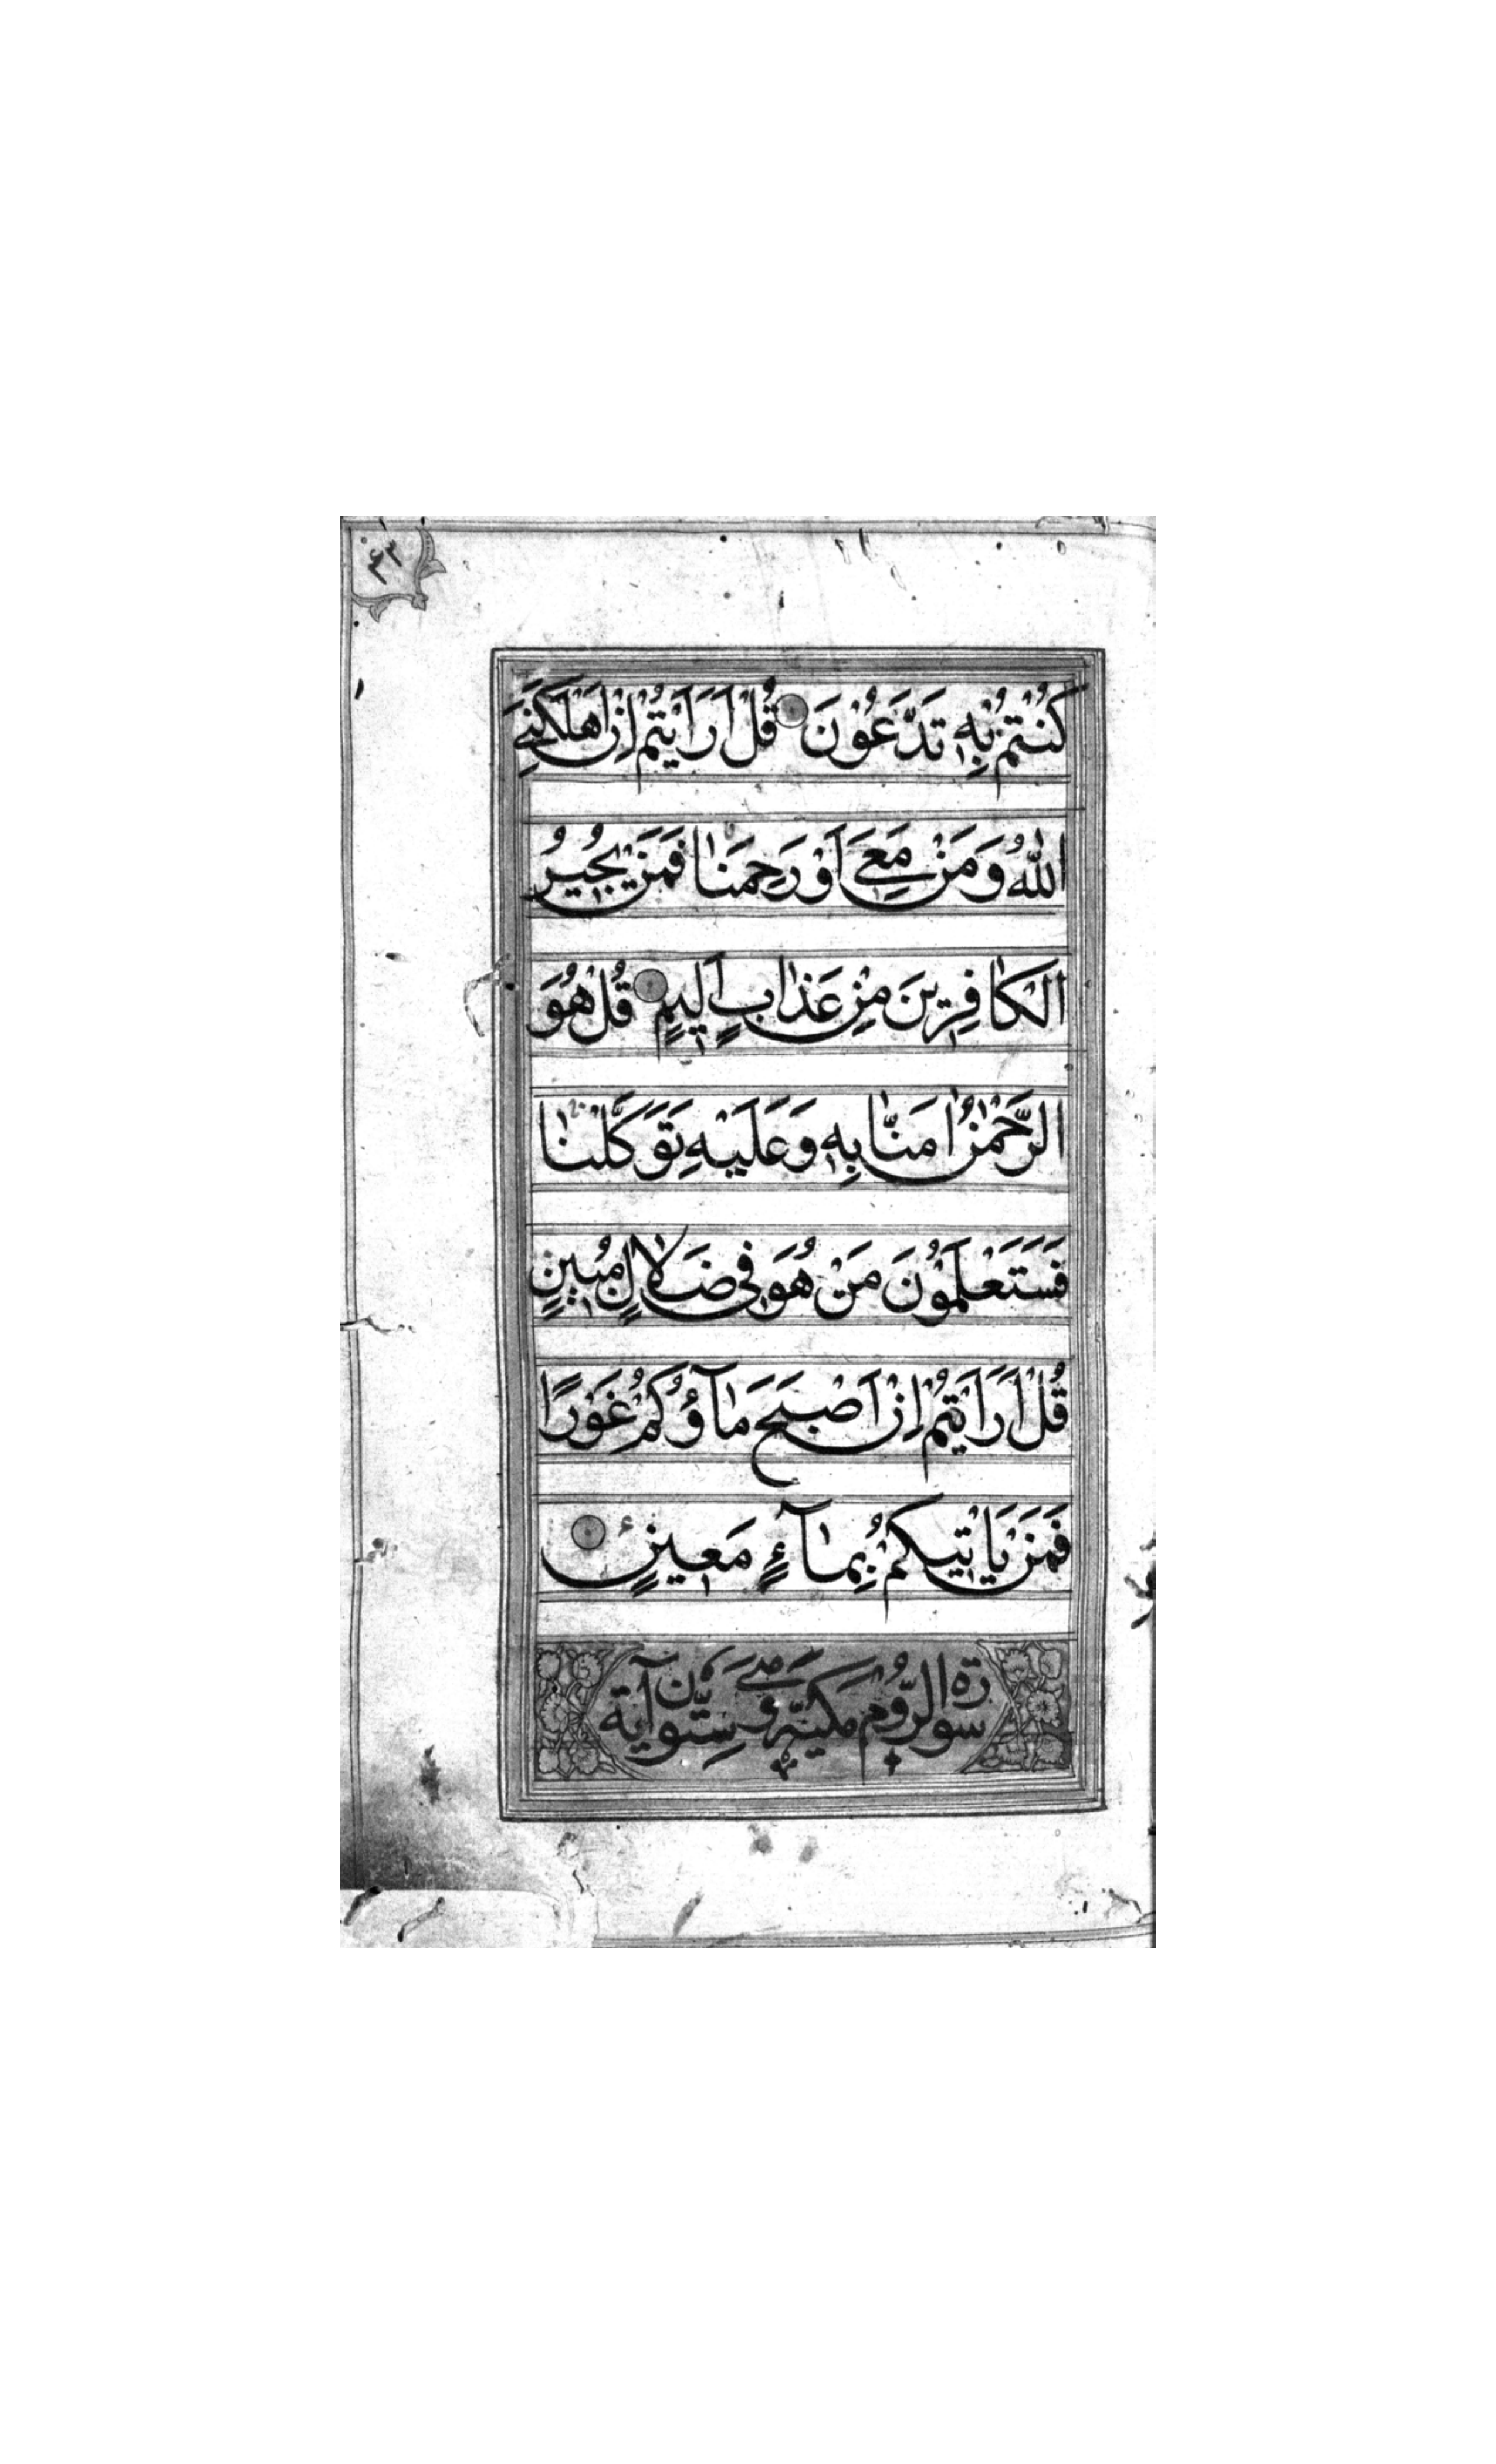 ۴۳
كُنْتُمْ بِهِ تَدَّعُوْنَ قُلْ اَرَاَيْتُمْ اِنْ اَهْلَكَنِيَ
اللّٰهُ وَمَنْ مَعِيَ اَوْ رَحِمَنٰا فَمَنْ يُجِيرُ
الْكٰافِرِينَ مِنْ عَذٰابٍ اَلِيمٍ قُلْ هُوَ
الرَّحْمٰنُ اٰمَنّٰا بِهِ وَعَلَيْهِ تَوَكَّلْنٰا
فَسَتَعْلَمُوْنَ مَنْ هُوَ فِي ضَلاٰلٍ مُبِينٍ
قُلْ اَرَاَيْتُمْ اِنْ اَصْبَحَ مٰآؤُكُمْ غَوْرًا
فَمَنْ يَاْتِيكُمْ بِمٰآءٍ مَعِينٍ
سورة الرُّوم مكيّة وهي ستّون آية